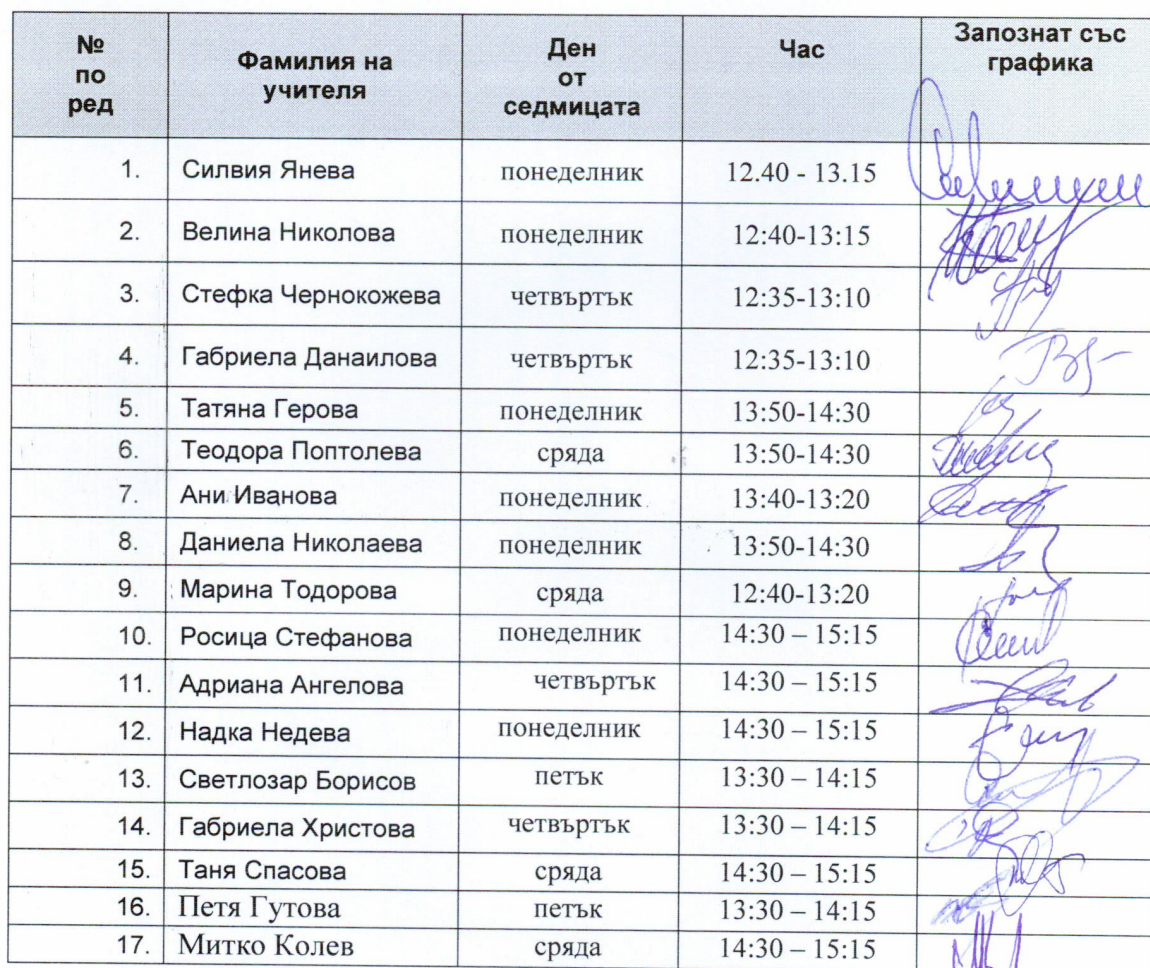 № по ред Фамилия на учителя Ден от седмицата Час Запознат със графика
1. Силвия Янева понеделник 12.40 - 13.15
2. Велина Николова понеделник 12:40-13:15
3. Стефка Чернокожева четвъртък 12:35-13:10
4. Габриела Данаилова четвъртък 12:35-13:10
5. Татяна Герова понеделник 13:50-14:30
6. Теодора Поптолева сряда 13:50-14:30
7. Ани Иванова понеделник 13:40-13:20
8. Даниела Николаева понеделник 13:50-14:30
9. Марина Тодорова сряда 12:40-13:20
10. Росица Стефанова понеделник 14:30 – 15:15
11. Адриана Ангелова четвъртък 14:30 – 15:15
12. Надка Недева понеделник 14:30 – 15:15
13. Светлозар Борисов петък 13:30 – 14:15
14. Габриела Христова четвъртък 13:30 – 14:15
15. Таня Спасова сряда 14:30 – 15:15
16. Петя Гутова петък 13:30 – 14:15
17. Митко Колев сряда 14:30 – 15:15